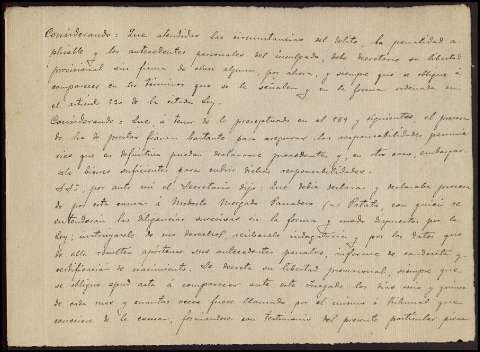 Considerando: Que atendidas las circunstancias del delito, la penalidad a-
plicable y los antecedentes personales del inculpado, debe decretarse su libertad
provisional sin fianza de clase alguna, por ahora, y siempre que se obligue á
comparecer en los términos que se le señalen y en la forma ordenada en
el artículo 530 de la citada Ley.
Considerando: Que, á tenor de lo preceptuado en el 589 y siguientes, el procesa-
do ha de prestar fianza bastante para asegurar las responsabilidades pecunia-
rias que en definitiva puedan declararse procedentes y, en otro caso, embargar-
sele bienes suficientes para cubrir dichas responsabilidades.
S.Sª, por ante mi el Secretario dijo: Que debia declarar y declaraba procesa-
do por esta causa á Modesto Morgado Panadero (a) Patata, con quien se
entenderán las diligencias sucesivas en la forma y modo dispuestos por la
Ley; instruyasele de sus derechos, recíbasele indagatoria y por los datos que
de ella resulten apórtense sus antecedentes penales, informe de conducta y
certificación de nacimiento. Se decreta su libertad provisional, siempre que
se obligue apud acta á comparecer ante este Juzgado los dias uno y quince
de cada mes y cuantas veces fuere llamado por el mismo ó Tribunal que
conociere de la causa, formándose con testimonio del presente particular pieza